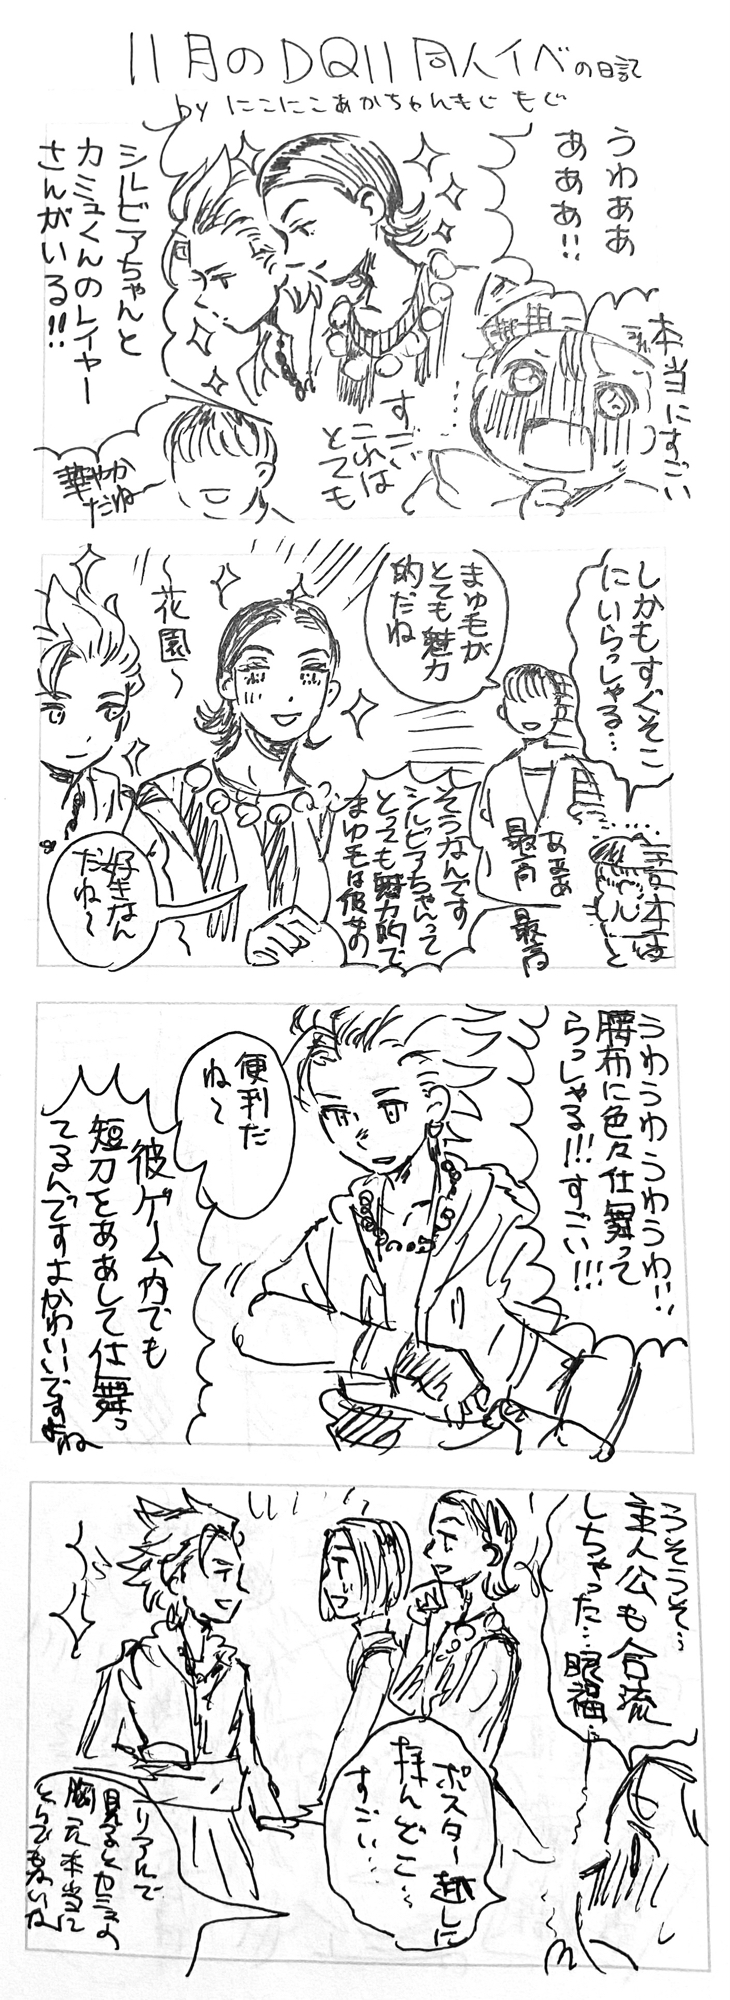 11月のDQ11同人イベの日記
by にこにこあかちゃんもじもじ
うわああ
あああ!!
シルビアちゃんと
カミュくんのレイヤー
さんがいる!!
本当にすごい
すごい
これは
とても
華やか
だね
しかもすぐそこ
にいらっしゃる…
まゆ毛が
とても魅力
的だね
〜花園〜
そうなんです
シルビアちゃんって
とっても魅力的で
まゆ毛は彼女の
あああ
最高
最高
好きなん
だね〜
うわうわうわうわ!!
腰布に色々仕舞って
らっしゃる!!!すごい!!!
便利だ
ね〜
彼ゲーム内でも
短刀をああして仕舞っ
てるんですよかわいいですよね
うそうそ…
主人公も合流
しちゃった…眼福…
ポスター越しに
拝んどこ…
すごい…
リアルで
見るとカミュの
胸元本当に
とんでもないな